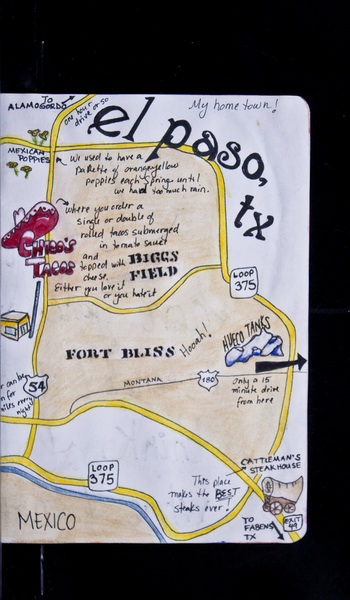 TO
ALAMOGORDO
one hour
drive or so
My home town!
el paso,
tx
MEXICAN
POPPIES
We used to have a
palette of orange yellow
poppies each Spring until
we had too much rain.
where you order a
single or double of
rolled tacos submerged
in tomato sauce
and
topped with
cheese.
Either you love it
or you hate it
CHICO'S
TACOS
BIGGS
FIELD
LOOP
375
FORT BLISS
Hooah!
HUECO TANKS
54
MONTANA
180
only a 15
minute drive
from here
LOOP
375
CATTLEMAN'S
STEAKHOUSE
This place
makes the BEST
steaks ever!
MEXICO
TO
FABENS
TX
EXIT
49